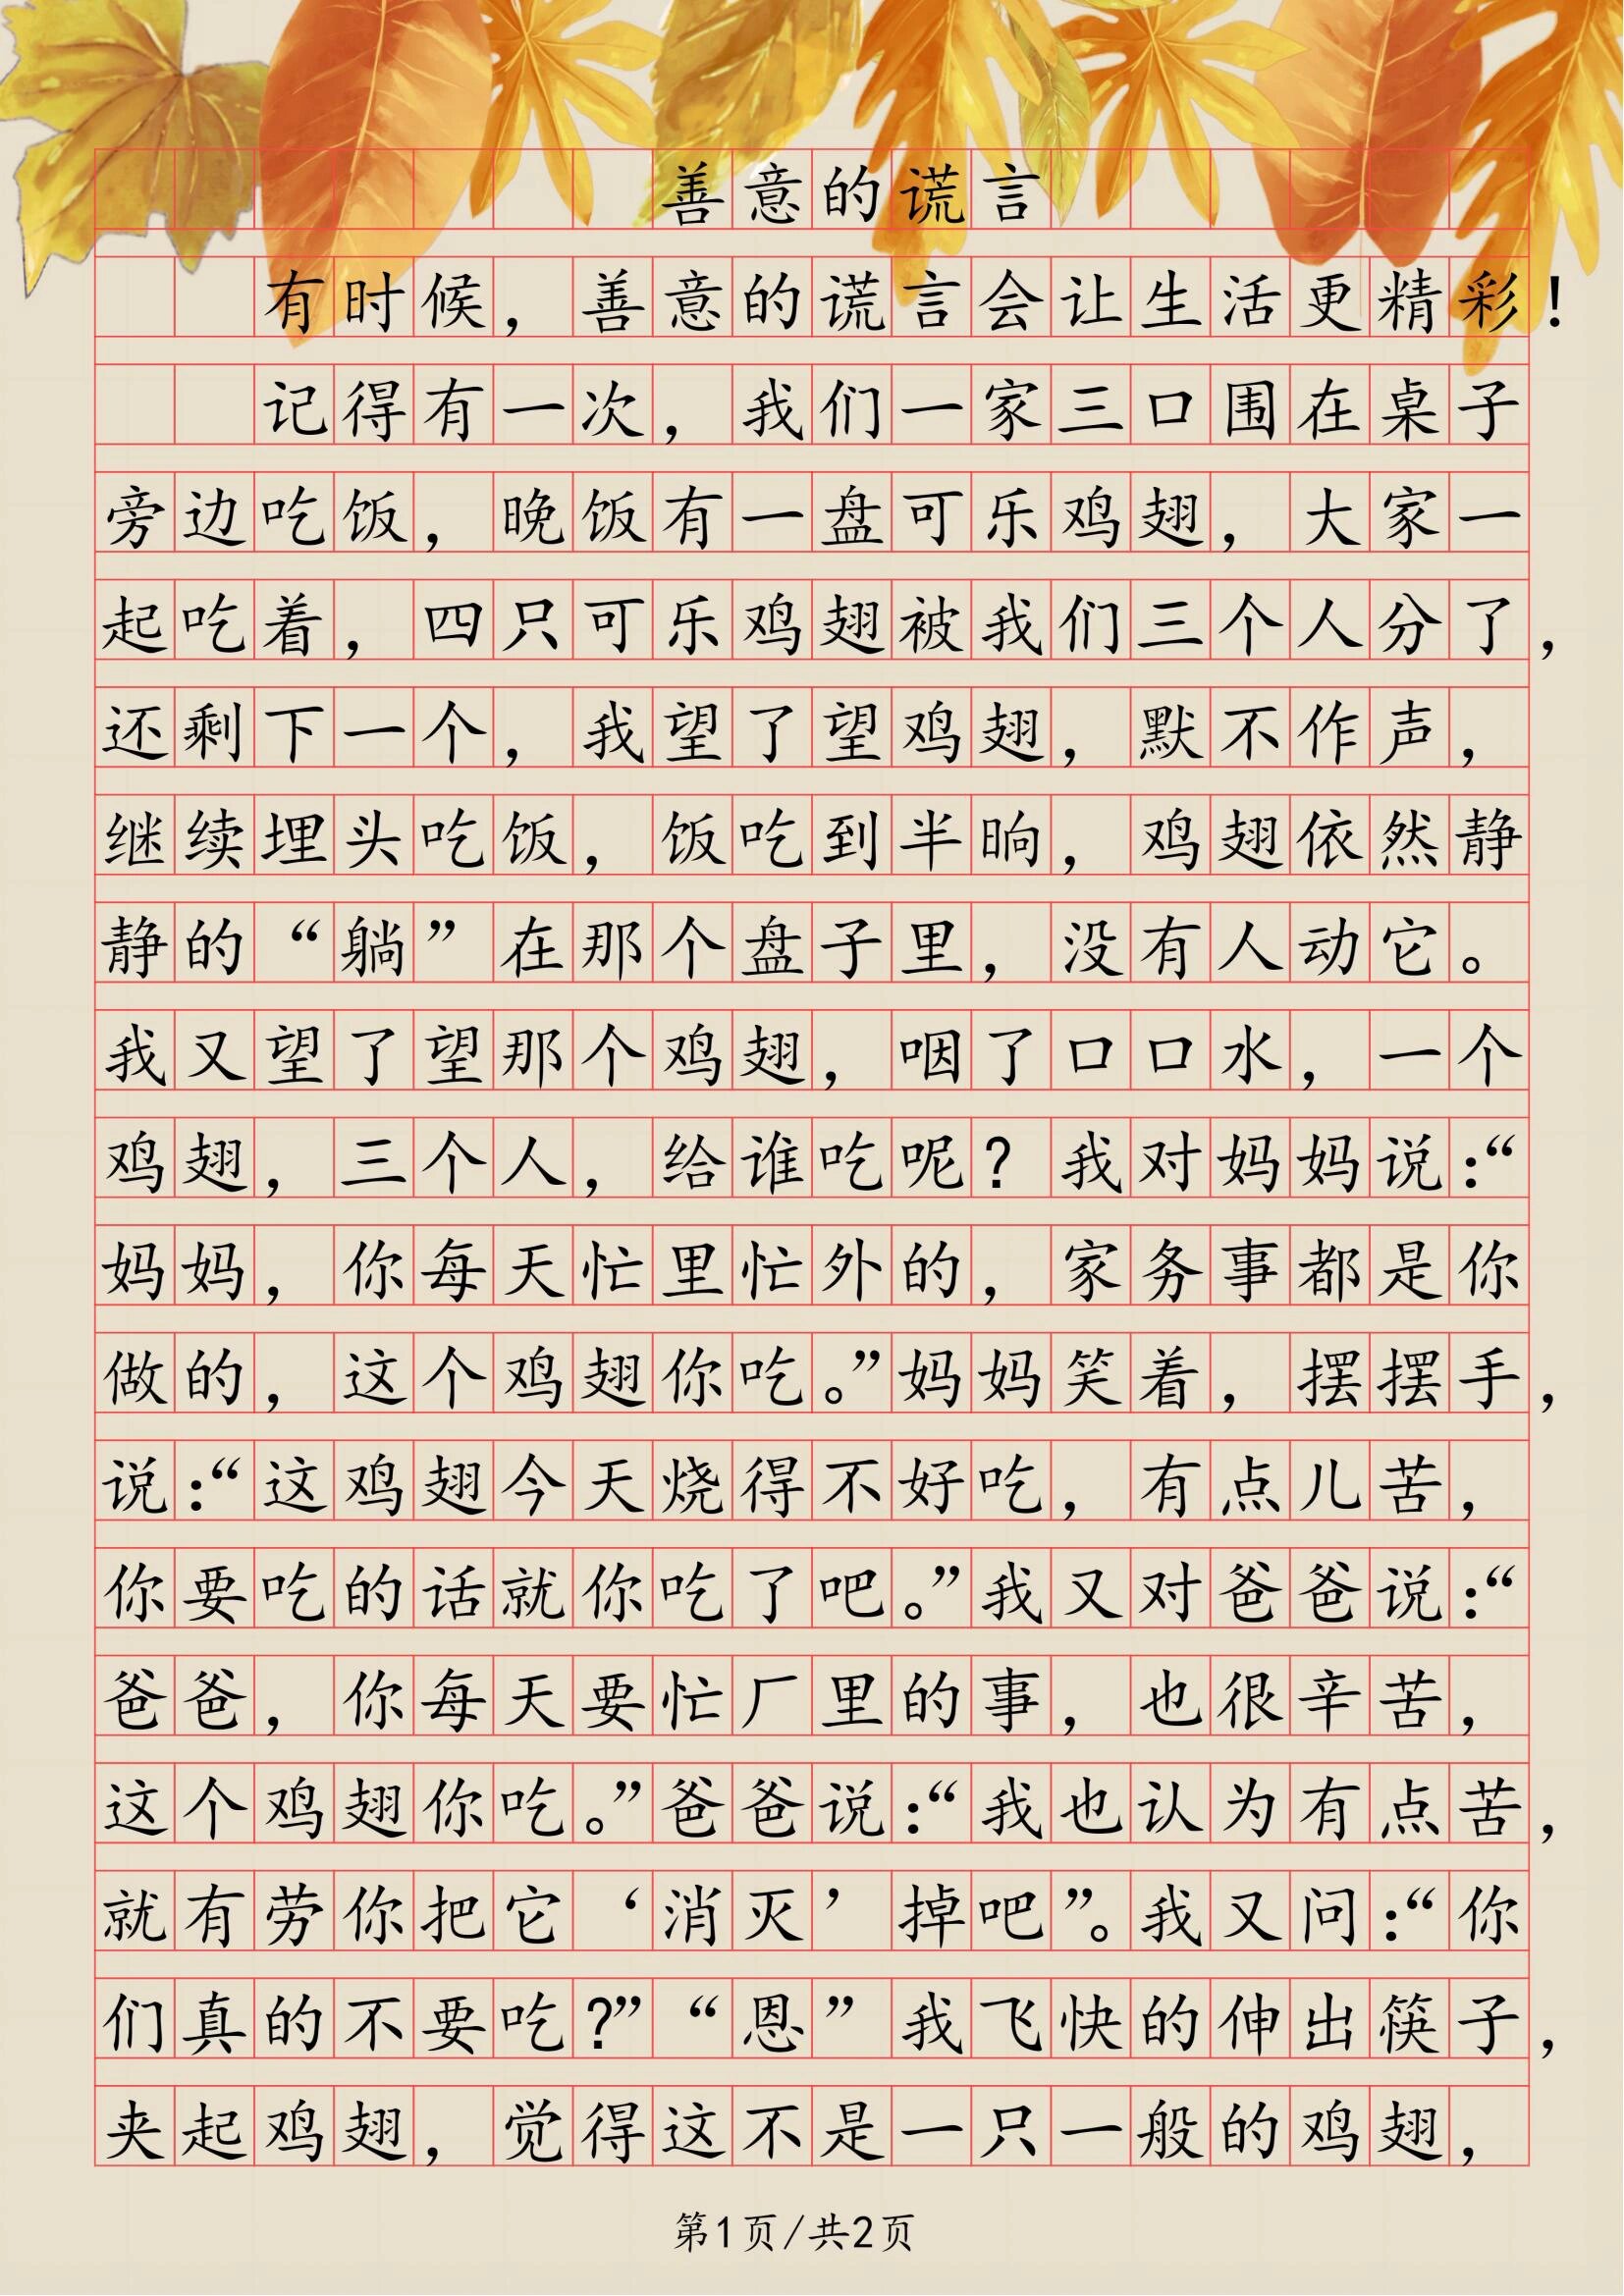 善意的谎言
有时候，善意的谎言会让生活更精彩！
记得有一次，我们一家三口围在桌子
旁边吃饭，晚饭有一盘可乐鸡翅，大家一
起吃着，四只可乐鸡翅被我们三个人分了，
还剩下一个，我望了望鸡翅，默不作声，
继续埋头吃饭，饭吃到半晌，鸡翅依然静
静的“躺”在那个盘子里，没有人动它。
我又望了望那个鸡翅，咽了口口水，一个
鸡翅，三个人，给谁吃呢？我对妈妈说：“
妈妈，你每天忙里忙外的，家务事都是你
做的，这个鸡翅你吃。”妈妈笑着，摆摆手，
说：“这鸡翅今天烧得不好吃，有点儿苦，
你要吃的话就你吃了吧。”我又对爸爸说：“
爸爸，你每天要忙厂里的事，也很辛苦，
这个鸡翅你吃。”爸爸说：“我也认为有点苦，
就有劳你把它‘消灭’掉吧”。我又问：“你
们真的不要吃？”“恩”我飞快的伸出筷子，
夹起鸡翅，觉得这不是一只一般的鸡翅，
第1页/共2页